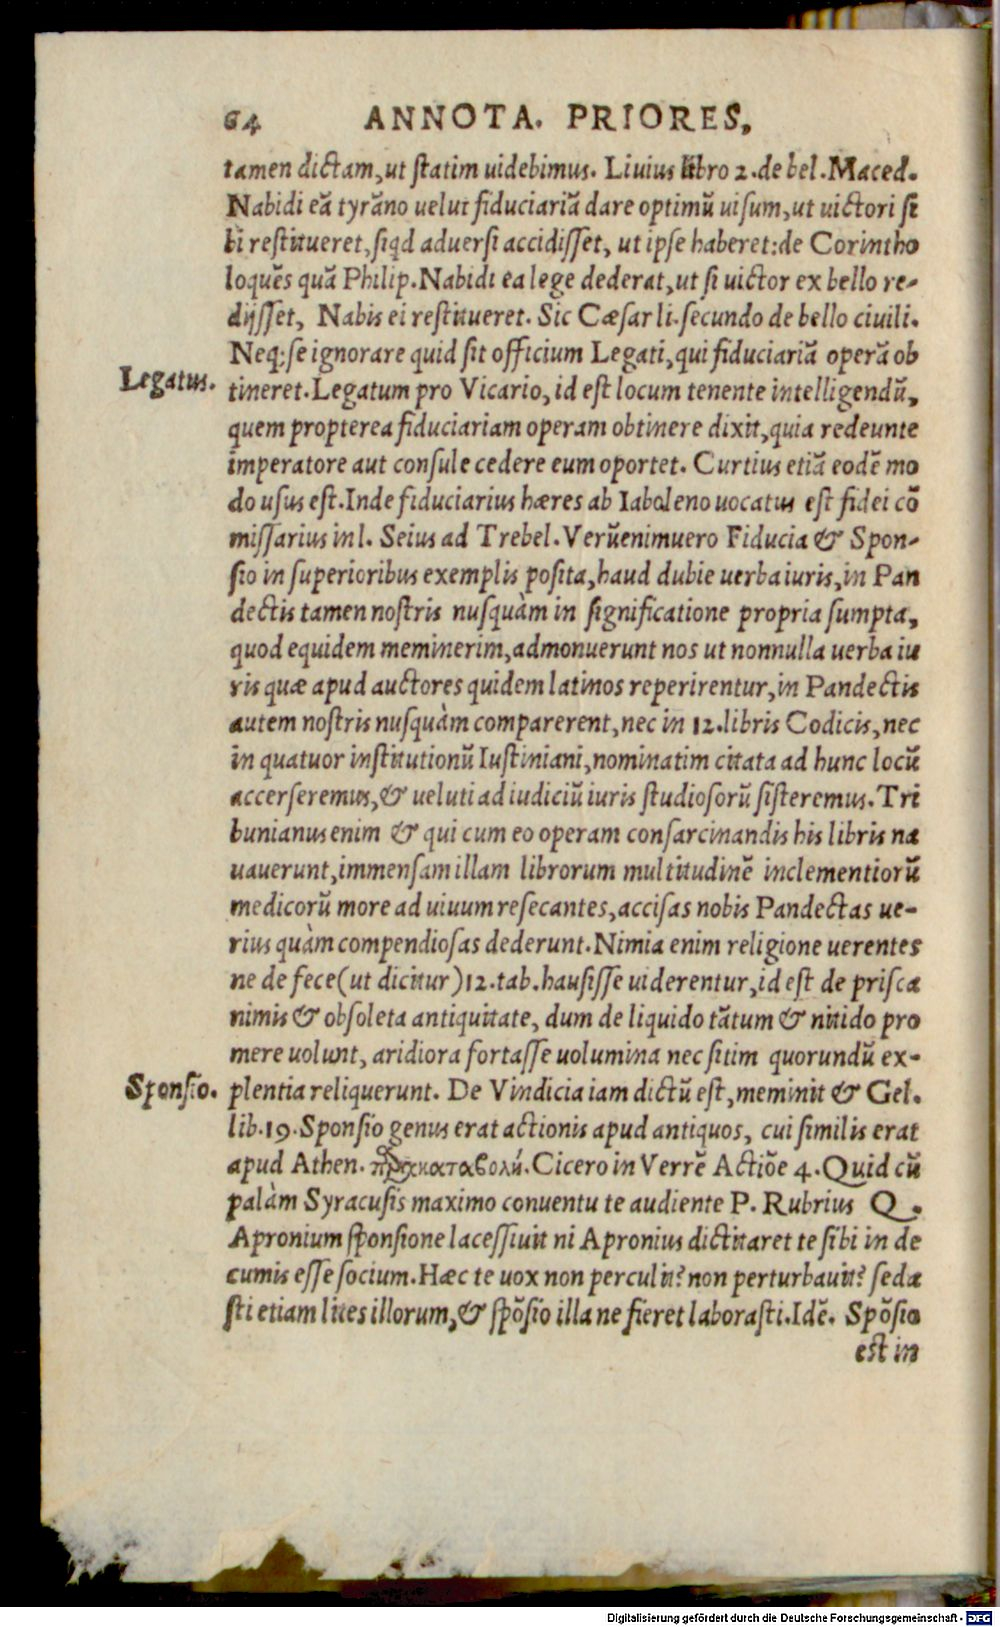 64 ANNOTA. PRIORES,
tamen dictam, ut ſtatim uidebimus. Liuius libro 2. de bel. Maced.
Nabidi eā tyrāno uelut fiduciariā dare optimū uiſum, ut uictori ſi
bi reſtitueret, ſiqd aduerſi accidiſſet, ut ipſe haberet: de Corintho
loquēs quā Philip. Nabidi ea lege dederat, ut ſi uictor ex bello re-
dijſſet, Nabis ei reſtitueret. Sic Cæſar li. ſecundo de bello ciuili.
Neq; ſe ignorare quid ſit officium Legati, qui fiduciariā operā ob
Legatus.
tineret. Legatum pro Vicario, id eſt locum tenente intelligendū,
quem propterea fiduciariam operam obtinere dixit, quia redeunte
imperatore aut conſule cedere eum oportet. Curtius etiā eodē mo
do uſus eſt. Inde fiduciarius hæres ab Iaboleno uocatus eſt fidei cō
miſſarius in l. Seius ad Trebel. Verūenimuero Fiducia & Spon-
ſio in ſuperioribus exemplis poſita, haud dubie uerba iuris, in Pan
dectis tamen noſtris nuſquàm in ſignificatione propria ſumpta,
quod equidem meminerim, admonuerunt nos ut nonnulla uerba iu
ris quæ apud auctores quidem latinos reperirentur, in Pandectis
autem noſtris nuſquàm comparerent, nec in 12. libris Codicis, nec
in quatuor inſtitutionū Iuſtiniani, nominatim citata ad hunc locū
accerſeremus, & ueluti ad iudiciū iuris ſtudioſorū ſiſteremus. Tri
bunianus enim & qui cum eo operam conſarcinandis his libris na
uauerunt, immenſam illam librorum multitudinē inclementiorū
medicorū more ad uiuum reſecantes, acciſas nobis Pandectas ue-
rius quàm compendioſas dederunt. Nimia enim religione uerentes
ne de fece (ut dicitur) 12. tab. hauſiſſe uiderentur, id eſt de priſca
nimis & obſoleta antiquitate, dum de liquido tātum & nitido pro
mere uolunt, aridiora fortaſſe uolumina nec ſitim quorundū ex-
Sponſio.
plentia reliquerunt. De Vindicia iam dictū eſt, meminit & Gel.
lib. 19. Sponſio genus erat actionis apud antiquos, cui ſimilis erat
apud Athen. . Cicero in Verrē Actiōe 4. Quid cū
palàm Syracuſis maximo conuentu te audiente P. Rubrius Q.
Apronium ſponſione laceſſiuit ni Apronius dictitaret te ſibi in de
cumis eſſe ſocium. Hæc te uox non perculit? non perturbauit? ſeda
ſti etiam lites illorum, & ſpōſio illa ne fieret laboraſti. Idē. Spōſio
eſt in
Digitalisierung gefördert durch die Deutsche Forschungsgemeinschaft - DFG